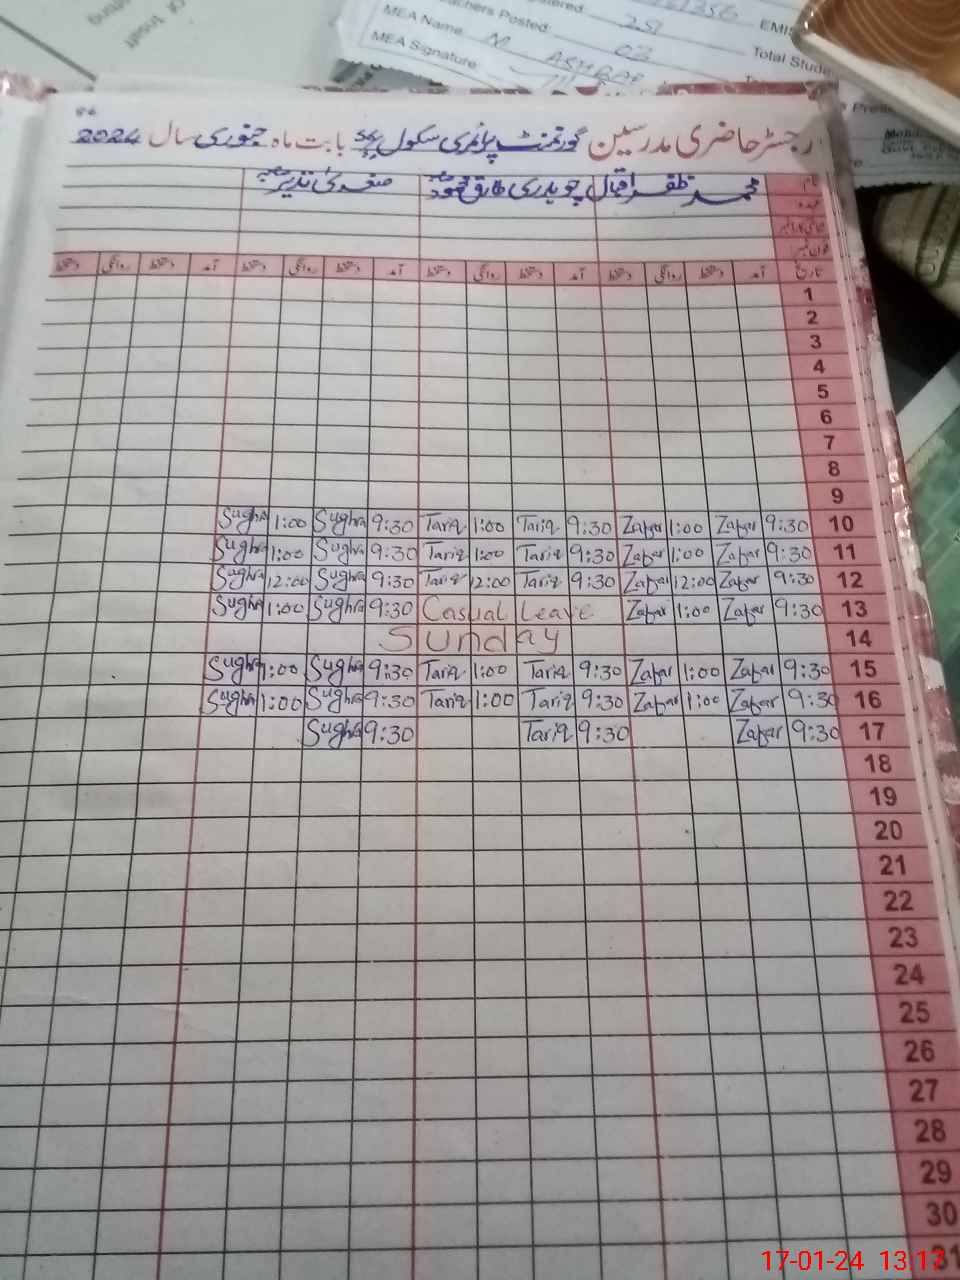 MEA Name M ASHRAF
MEA Signature
Teachers Posted 03
25
EMIS
Total Stude
رجسٹر حاضری مدرسین گورنمنٹ پرائمری سکول بابت ماہ جنوری سال 2024
نام محمد ظفر اقبال چوہدری طارق محمود صغریٰ نذیر
عہدہ
تاریخ آمد دستخط روانگی دستخط آمد دستخط روانگی دستخط آمد دستخط روانگی دستخط آمد دستخط روانگی دستخط
1
2
3
4
5
6
7
8
9
10 9:30 Zafar 1:00 Zafar 9:30 Tariq 1:00 Tariq 9:30 Sughra 1:00 Sughra
11 9:30 Zafar 1:00 Zafar 9:30 Tariq 1:00 Tariq 9:30 Sughra 1:00 Sughra
12 9:30 Zafar 12:00 Zafar 9:30 Tariq 12:00 Tariq 9:30 Sughra 12:00 Sughra
13 9:30 Zafar 1:00 Zafar Casual Leave 9:30 Sughra 1:00 Sughra
14 Sunday
15 9:30 Zafar 1:00 Zafar 9:30 Tariq 1:00 Tariq 9:30 Sughra 1:00 Sughra
16 9:30 Zafar 1:00 Zafar 9:30 Tariq 1:00 Tariq 9:30 Sughra 1:00 Sughra
17 9:30 Zafar 9:30 Tariq 9:30 Sughra
18
19
20
21
22
23
24
25
26
27
28
29
30
31
17-01-24 13:17